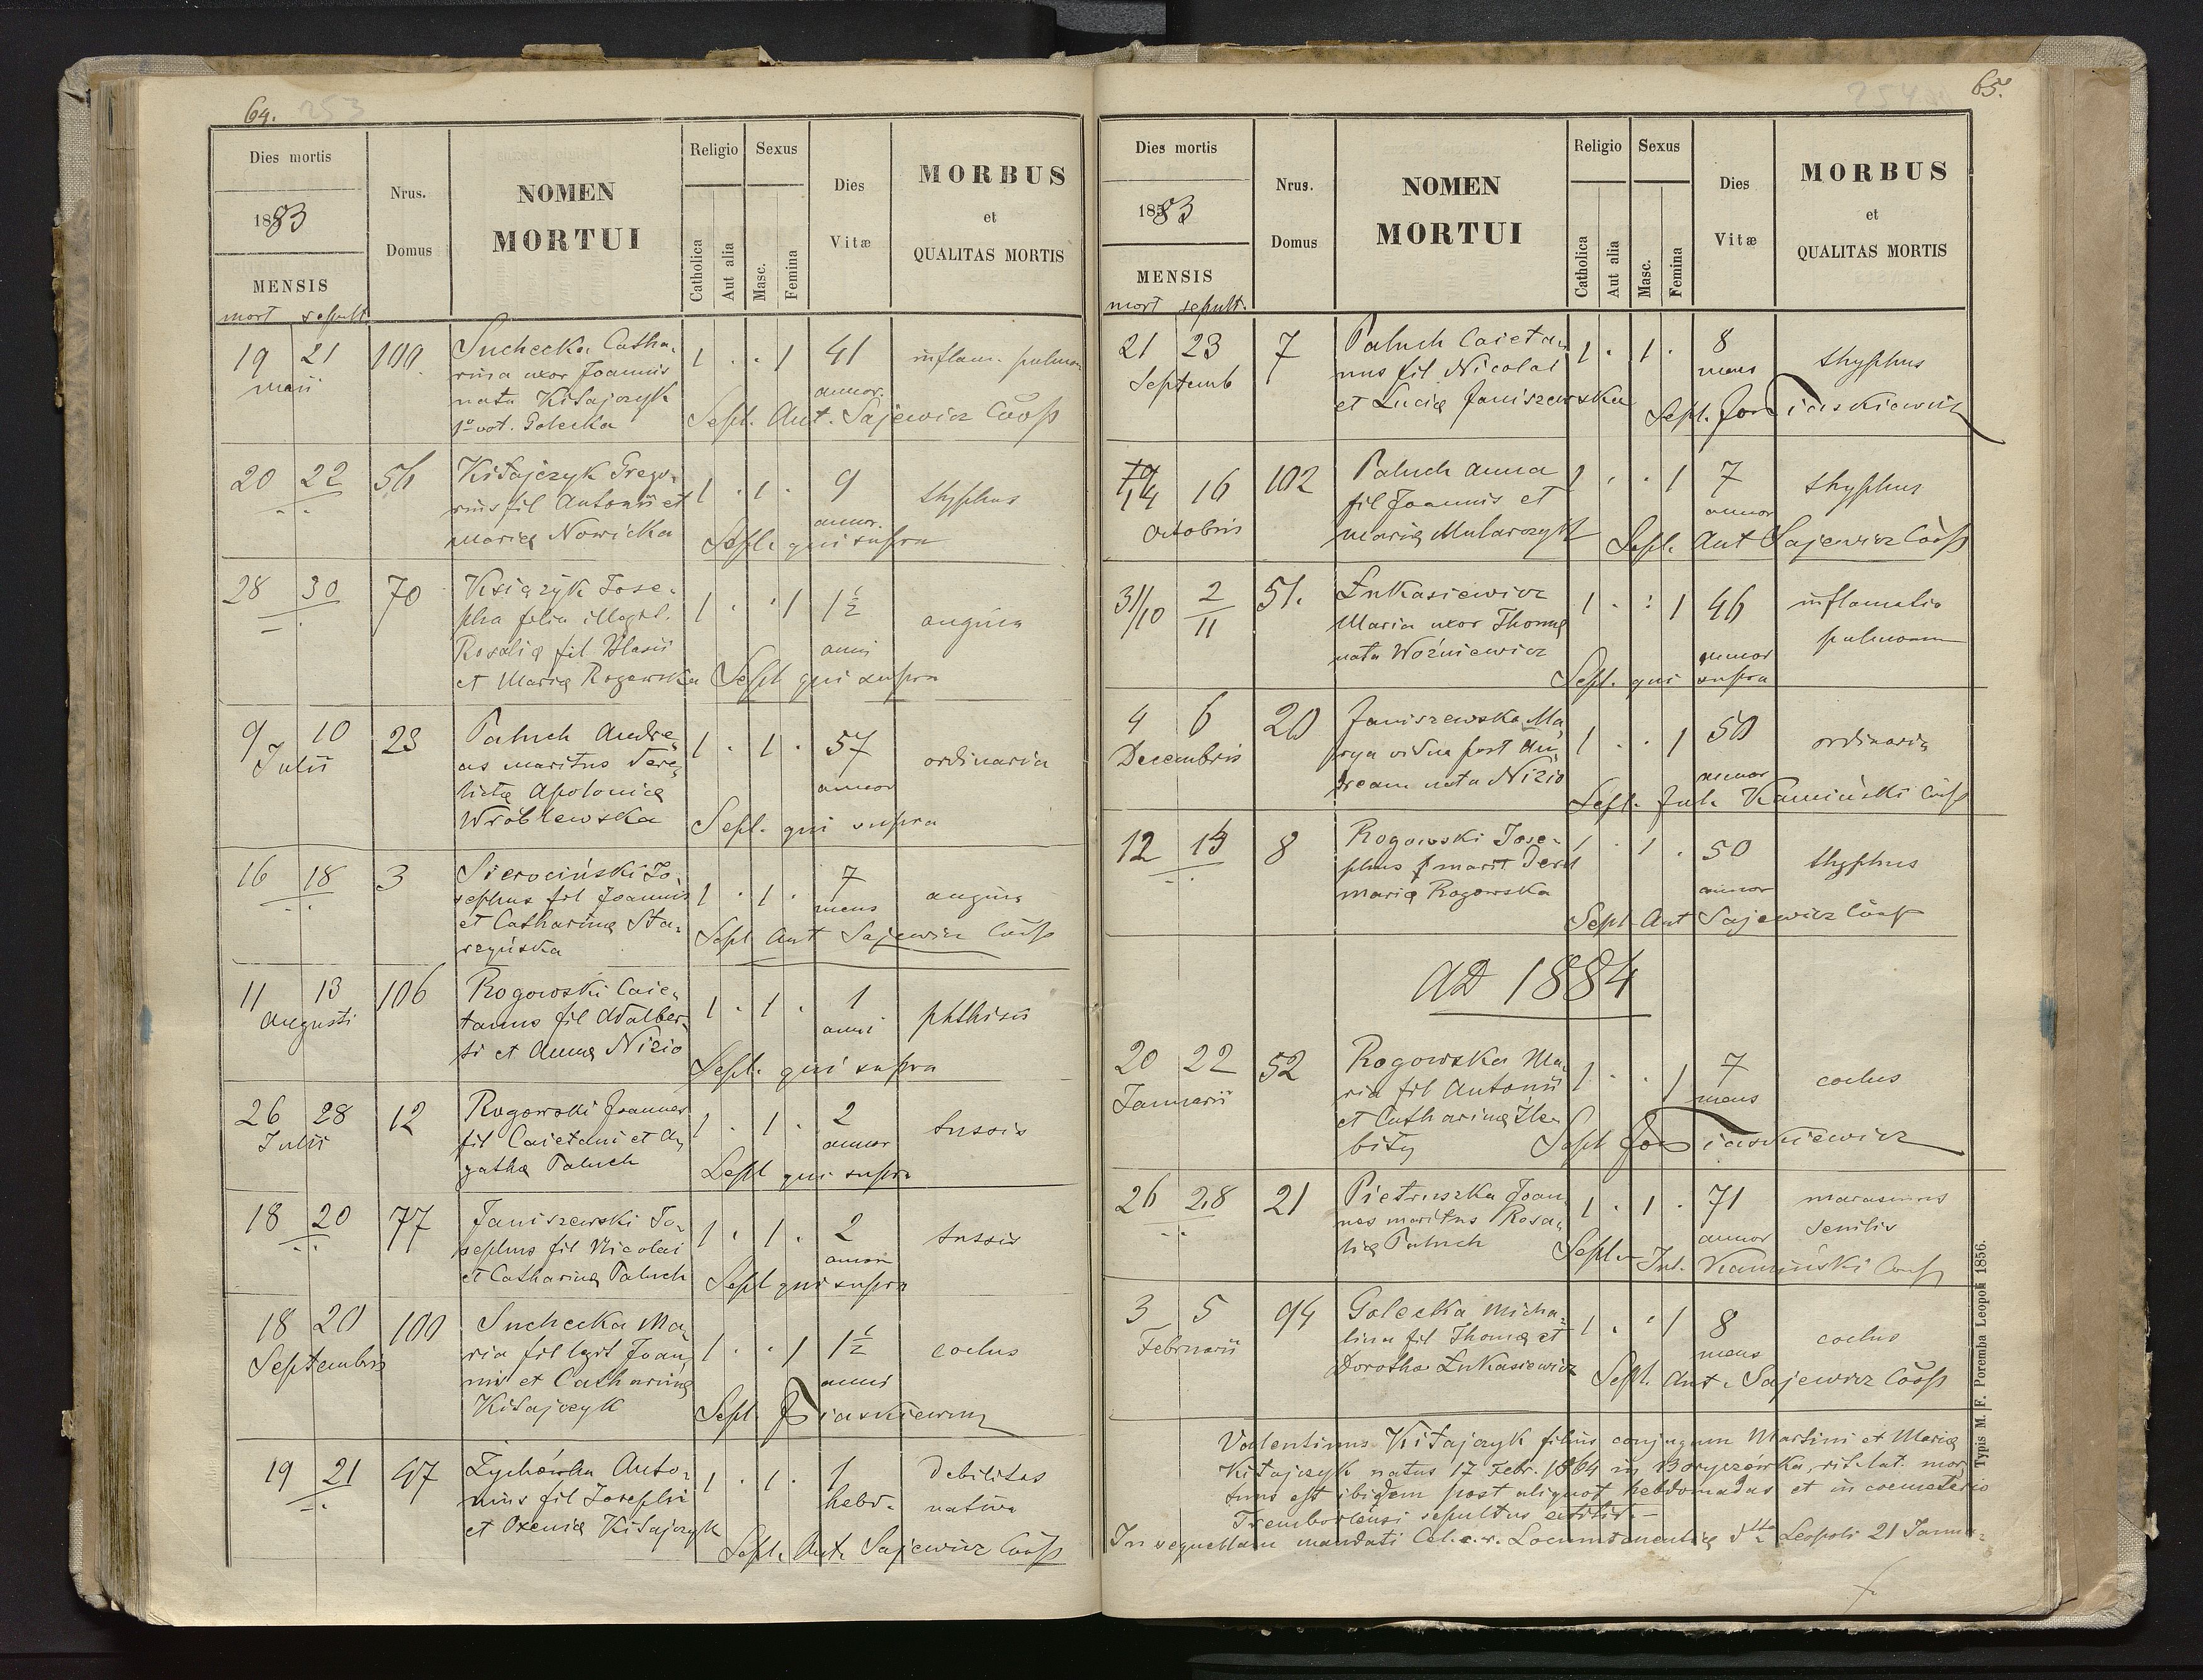 64. 253
Dies mortis
1883
MENSIS
mort sepult.
Nrus. Domus
NOMEN MORTUI
Religio
Catholica
Aut alia
Sexus
Masc.
Femina
Dies Vitæ
MORBUS
et
QUALITAS MORTIS
19 21 100 Suchecka Catha- 1 . . 1 41 inflam. pulmon
maii rina uxor Joannis
nata Kitajczyk annor.
1º vot. Golecka Sepl. Ant. Sajewicz Coop
20 22 56 Kitajczyk Grego- 1 . 1 . 9 thyphus
rius fil Antonii et annor.
Mariæ Nowicka Sepl. qui supra
28 30 70 Ksiązyk Jose- 1 . . 1 1½ angina
pha filia illegit.
Rosaliæ fil Blasii anni
et Mariæ Rogowska Sepl qui supra
9 10 23 Paluch Andre- 1 . 1 . 57 ordinaria
Julii as maritus dere-
lictæ Apoloniæ annor
Wróblewska Sepl. qui supra
16 18 3 Sierociński Jo- 1 . 1 . 7 angina
sephus fil Joannis mens
et Catharinæ Sta-
rzyńska Sepl Ant Sajewicz Coop
11 13 106 Rogowski Caie- 1 . 1 . 1 phthisis
Augusti tanus fil Adalber- anni
ti et Annæ Nizio Sepl. qui supra
26 28 12 Rogowski Joannes 1 . 1 . 2 tussis
Julii fil Caietani et A- annor
gathæ Paluch Sepl qui supra
18 20 77 Janiszewski Jo- 1 . 1 . 2 tussis
sephus fil Nicolai annor
et Catharinæ Paluch Sepl qui supra
18 20 100 Suchecka Ma- 1 . . 1 1½ coclus
Septembris ria fil lgt Joan-
nis et Catharinæ anni
Kitajczyk Sepl.
19 21 47 Żychówka Anto- 1 . 1 . 1 Debilitas
nius fil Josephi hebd. nativa
et Oxeniæ Kitajczyk
Sepl. Ant. Sajewicz Coop
65. 254
Dies mortis
1883
MENSIS
mort sepult.
Nrus. Domus
NOMEN MORTUI
Religio
Catholica
Aut alia
Sexus
Masc.
Femina
Dies Vitæ
MORBUS
et
QUALITAS MORTIS
21 23 7 Paluch Caieta- 1 . 1 . 8 thyphus
Septemb nus fil Nicolai mens
et Luciæ Janiszewska Sepl. Jos
14 16 102 Paluch Anna 1 . . 1 7 thyphus
Octobris fil Joannis et annor
Mariæ Mularczyk Sepl. Ant Sajewicz Coop
31/10 2/11 51. Łukasiewicz 1 . . 1 46 inflamatio
Maria uxor Thomæ pulmonum
nata Woźniewicz annor
Sepl. qui supra
4 6 20 Janiszewska Ma- 1 . . 1 50 ordinaria
Decembris rya vidua post An-
dream nata Nizio annor
Sepl. Jul. Kamiński Coop
12 14 8 Rogowski Jose- 1 . 1 . 50 thyphus
phus marit derel
Mariæ Rogowska annor
Sepl Ant Sajewicz Coop
AD 1884
20 22 52 Rogowska Ma- 1 . . 1 7 coclus
Januarii ria fil Antonii mens
et Catharinæ Hle-
bity Sepl Jos
26 28 21 Pietruszka Joan- 1 . 1 . 71 marasmus
nes maritus Rosa- senilis
liæ Paluch annor
Sepl. Jul. Kamiński Coop
3 5 94 Golecka Micha- 1 . . 1 8 coclus
Februarii lina fil Thomæ et mens
Dorothæ Łukasiewicz Sepl. Ant. Sajewicz Coop
Valentinus Kitajczyk filius conjugum Martini et Mariæ
Kitajczyk natus 17 Febr. 1864 in Boryczówka, rit. lat. mor-
tuus est ibidem post aliquot hebdomadas et in coemeterio
Trembovlensi sepultus extitit.—
In sequellam mandati Cel. c. r. Locumtenentiæ dtto Leopoli 21 Janua-
Typis M. F. Poremba Leopoli 1856.